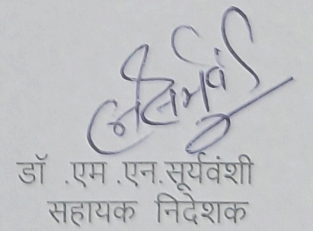 डॉ .एम .एन.सूर्यवंशी
सहायक निदेशक